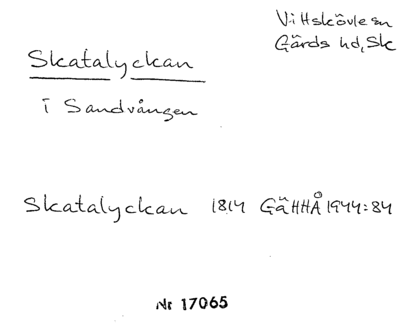 Vittskövle sn
Gärds hd, Sk
Skatalyckan
i Sandvången
Skatalyckan 1814 GäHHÅ 1944:84
Nr 17065